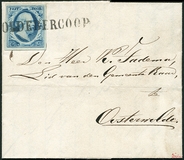 OLDEBERCOOP
Den Heer K. Tadema,
Lid van den Gemeente Raad,
Oosterwolde